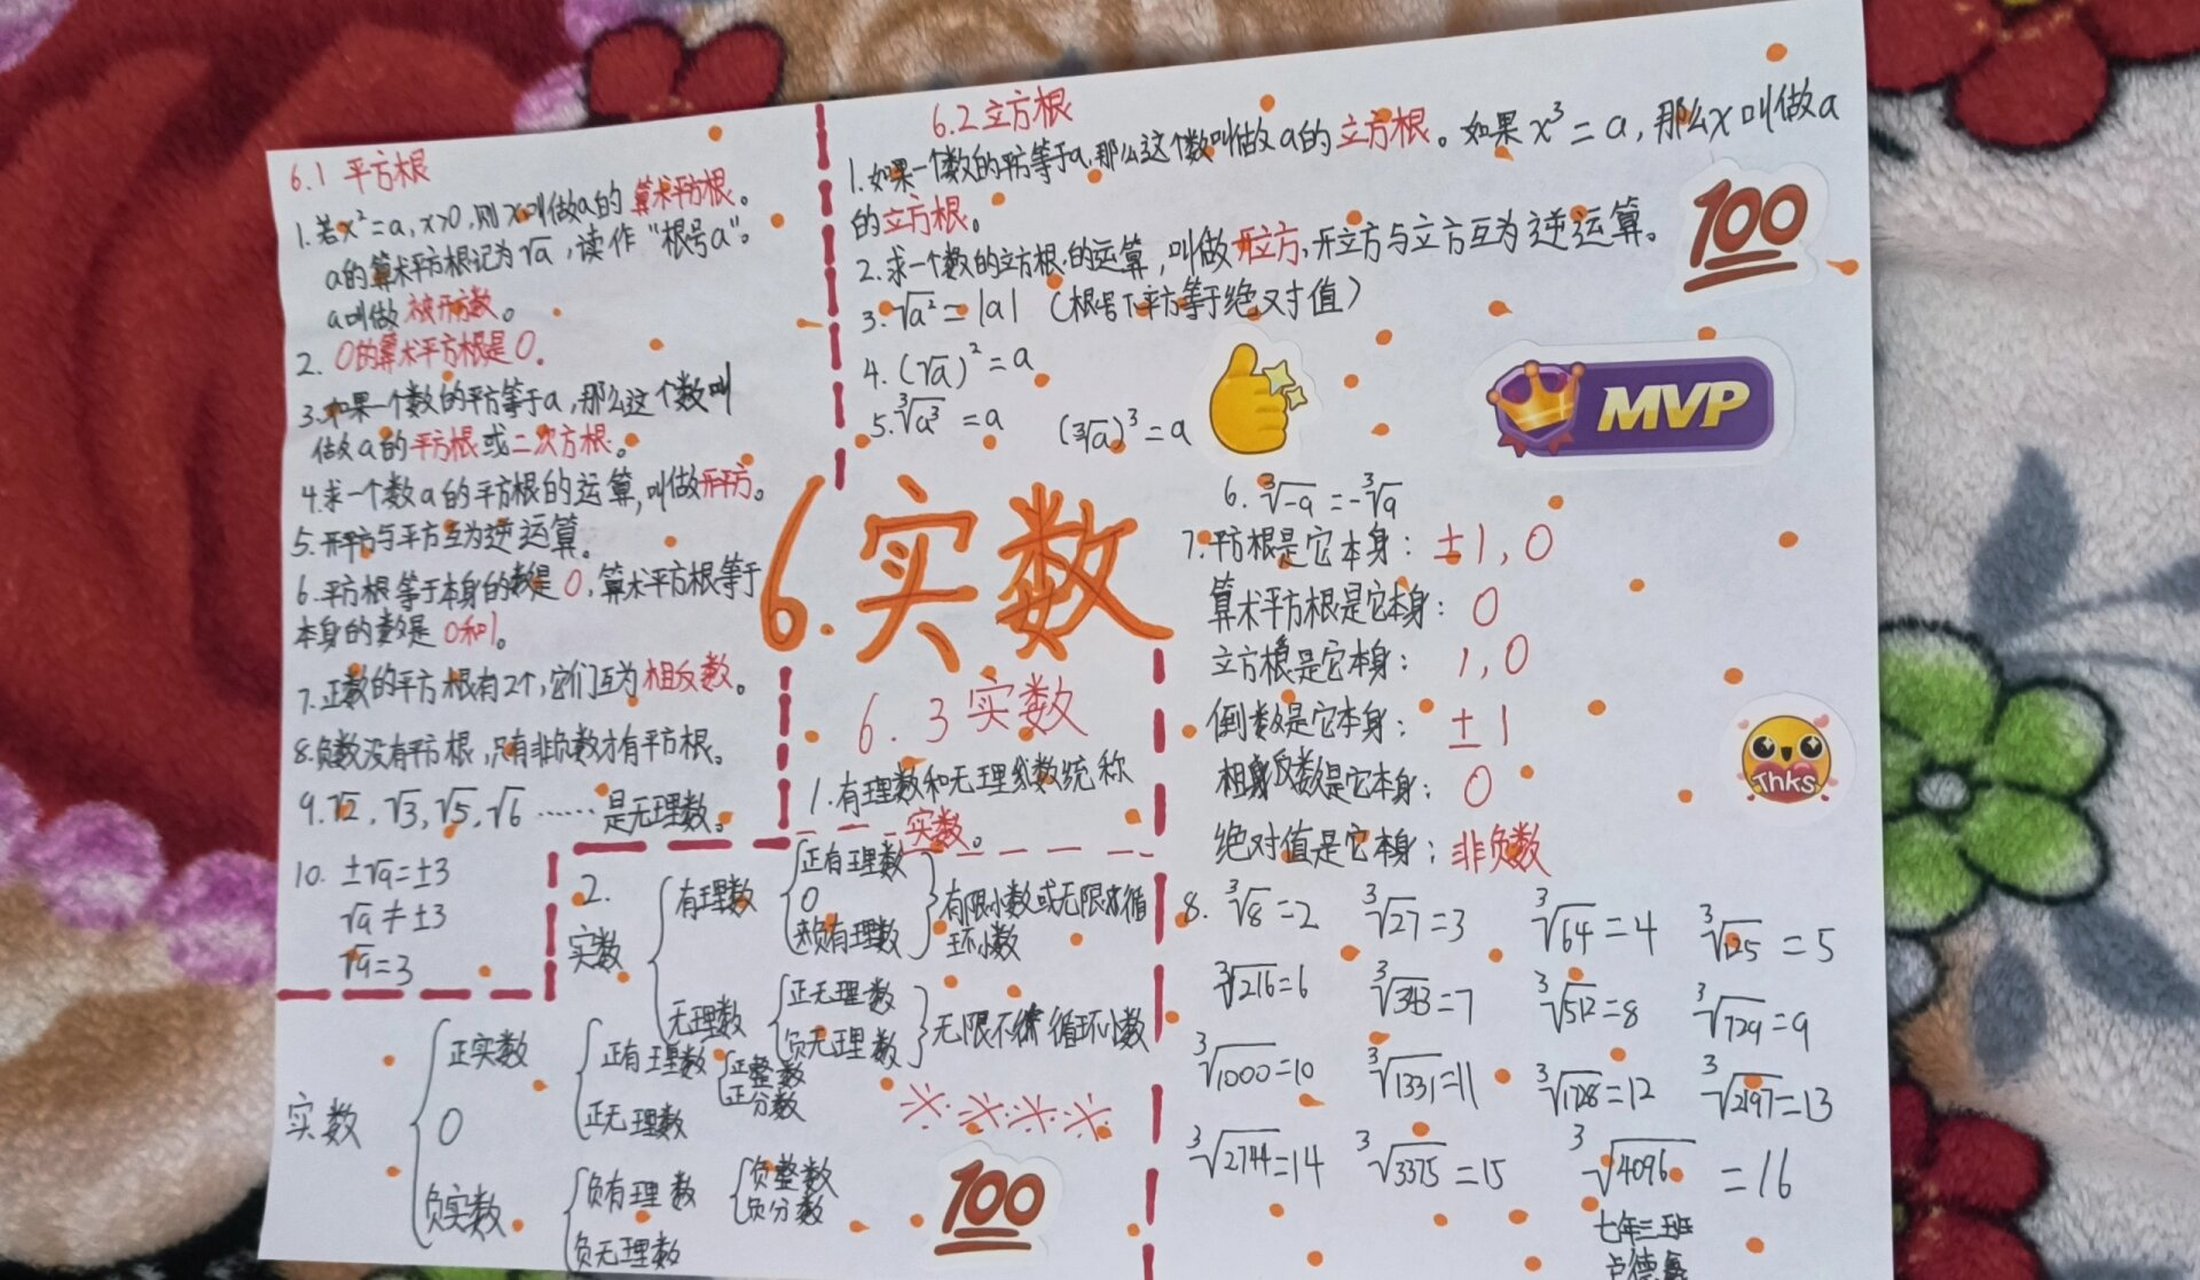 6.1 平方根
1.若x²=a,x>0,则x叫做a的算术平方根。
a的算术平方根记为√a,读作“根号a”。
a叫做被开方数。
2. 0的算术平方根是0.
3.如果一个数的平方等于a,那么这个数叫
做a的平方根或二次方根。
4.求一个数a的平方根的运算,叫做开平方。
5.开平方与平方互为逆运算.
6.平方根等于本身的数是0,算术平方根等于
本身的数是0和1。
7.正数的平方根有2个,它们互为相反数。
8.负数没有平方根,只有非负数才有平方根。
9.√2,√3,√5,√6……是无理数。
10. ±√9=±3
√9≠±3
√9=3
6.2立方根
1.如果一个数的平方等于a,那么这个数叫做a的立方根。如果x³=a,那么x叫做a
的立方根。
2.求一个数的立方根的运算,叫做开立方,开立方与立方互为逆运算。
3.√a²=|a| (根号下平方等于绝对值)
4.(√a)²=a
5.³√a³=a (³√a)³=a
100
MVP
6. ³√-a=-³√a
7.平方根是它本身: ±1,0
算术平方根是它本身: 0
立方根是它本身: 1,0
倒数是它本身: ±1
相反数是它本身: 0
绝对值是它本身:非负数
Thks
8. ³√8=2 ³√27=3 ³√64=4 ³√125=5
³√216=6 ³√343=7 ³√512=8 ³√729=9
³√1000=10 ³√1331=11 ³√1728=12 ³√2197=13
³√2744=14 ³√3375=15 ³√4096=16
七年三班
卢德
6.实数
6.3实数
1.有理数和无理数统称
实数。
2.
实数
有理数
正有理数
0
负有理数
有限小数或无限循
环小数
无理数
正无理数
负无理数
无限不循环小数
实数
正实数
正有理数
正整数
正分数
正无理数
0
负实数
负有理数
负整数
负分数
负无理数
100